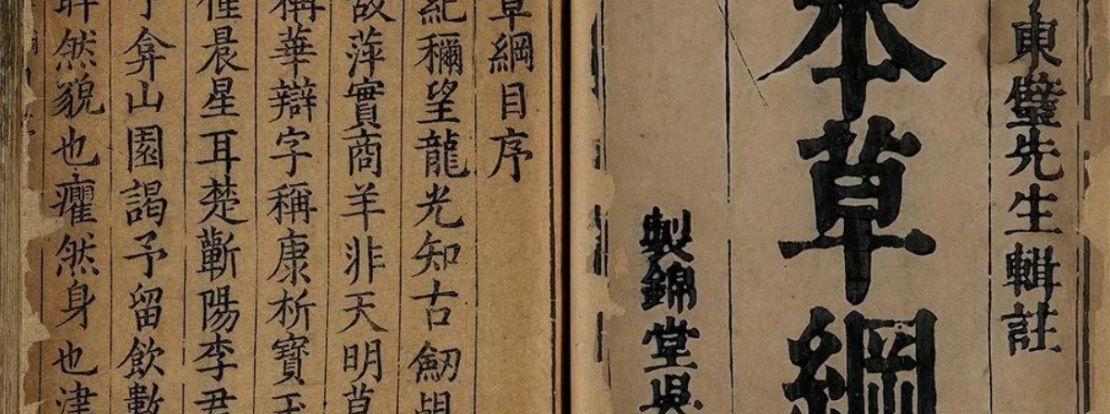 東璧先生輯註
本草綱
製錦堂
草綱目序
紀稱望龍光知古劒覘
故萍實商羊非天明草
稱華辯字稱康析寶玉
僅晨星耳楚蘄陽李君
予弇山園謁予留飲數
睟然貌也癯然身也津